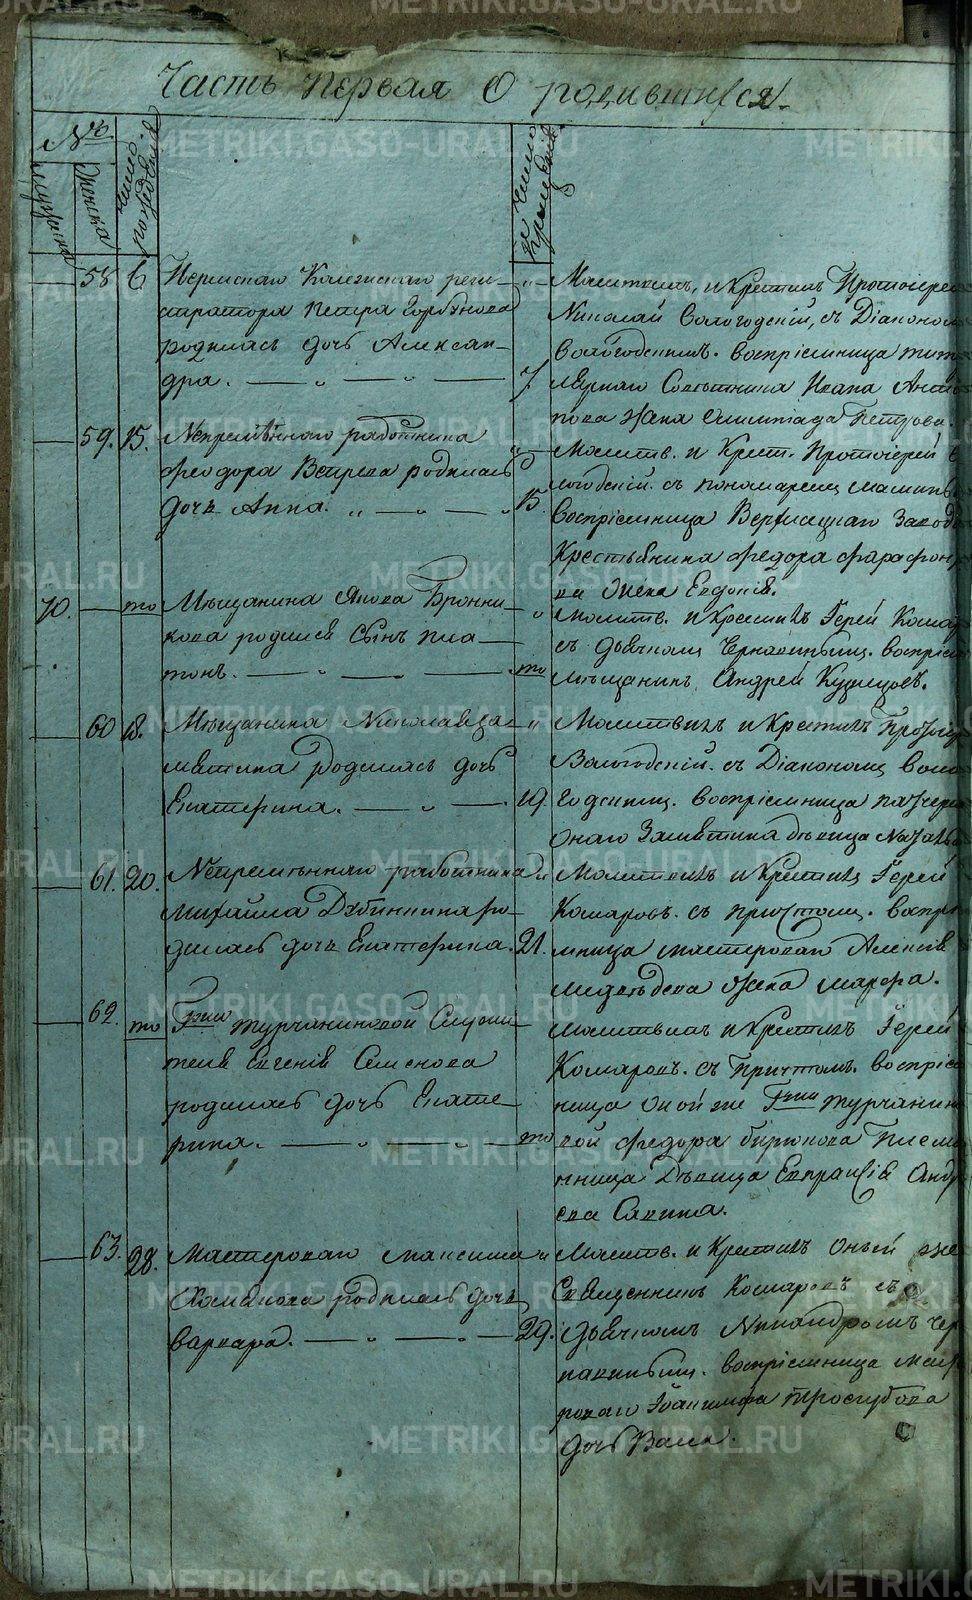 METRIKI.GASO-URAL.RU
Часть первая О родившихся
№
мужска
женска
число рождения
и число крещения
58 6
Пермскаго Колежскаго реги-
стратора Петра Горбунова
родилась дочь Алексан-
дра.
7.
Молитвилъ и Крестилъ Протоиерей
Николай Вологодский, съ Диакономъ
Вологодскимъ. восприемница титу
лярнаго Советника Ивана Анти
пова жена Олимпиада Петрова.
59. 15.
Непременнаго работника
Феодора родилась
дочь Анна.
15
Молитв. и Крест. Протоиерей В
логодский. съ пономаремъ
восприемница завода
Крестьянина Федора Фарафон
ва жена Евдокия.
70. то
Мещанина Якова Бронни-
кова родился сынъ Пла-
тонъ.
то
Молитв. и крестилъ Иерей Комар
съ дьячкомъ восприем
мещанинъ Андрей Кузнецовъ.
60 18.
Мещанина Николая За-
мятина родилась дочь
Екатерина.
19.
Молитвилъ и Крестилъ Протоиер
Вологодский. съ Диакономъ Воло
годскимъ. восприемница
онаго Замятина девица
61. 20.
Непременнаго работника
Михайла Дубинкина ро-
дилась дочь Екатерина.
21.
Молитвилъ и Крестилъ Иерей
Комаровъ. съ причтомъ. воспри
мница мастероваго Алексея
Медведева жена Марфа.
62. то
Гжи Турчаниновой Служи-
теля Евгения Семенова
родилась дочь Екате-
рина.
то
Молитвилъ и Крестилъ Иерей
Комаровъ. съ Причтомъ. восприем
ница оной же Гжи Турчанино
вой Федора Бирюкова племя
нница Девица Евпраксия Андр
ева
63. 28.
Мастероваго Максима
родилась дочь
Варвара.
29.
Молитв. и Крестилъ оный же
Священникъ Комаровъ съ
дьячкомъ Никандромъ Чер
восприемница масте
роваго Иоакима
дочь